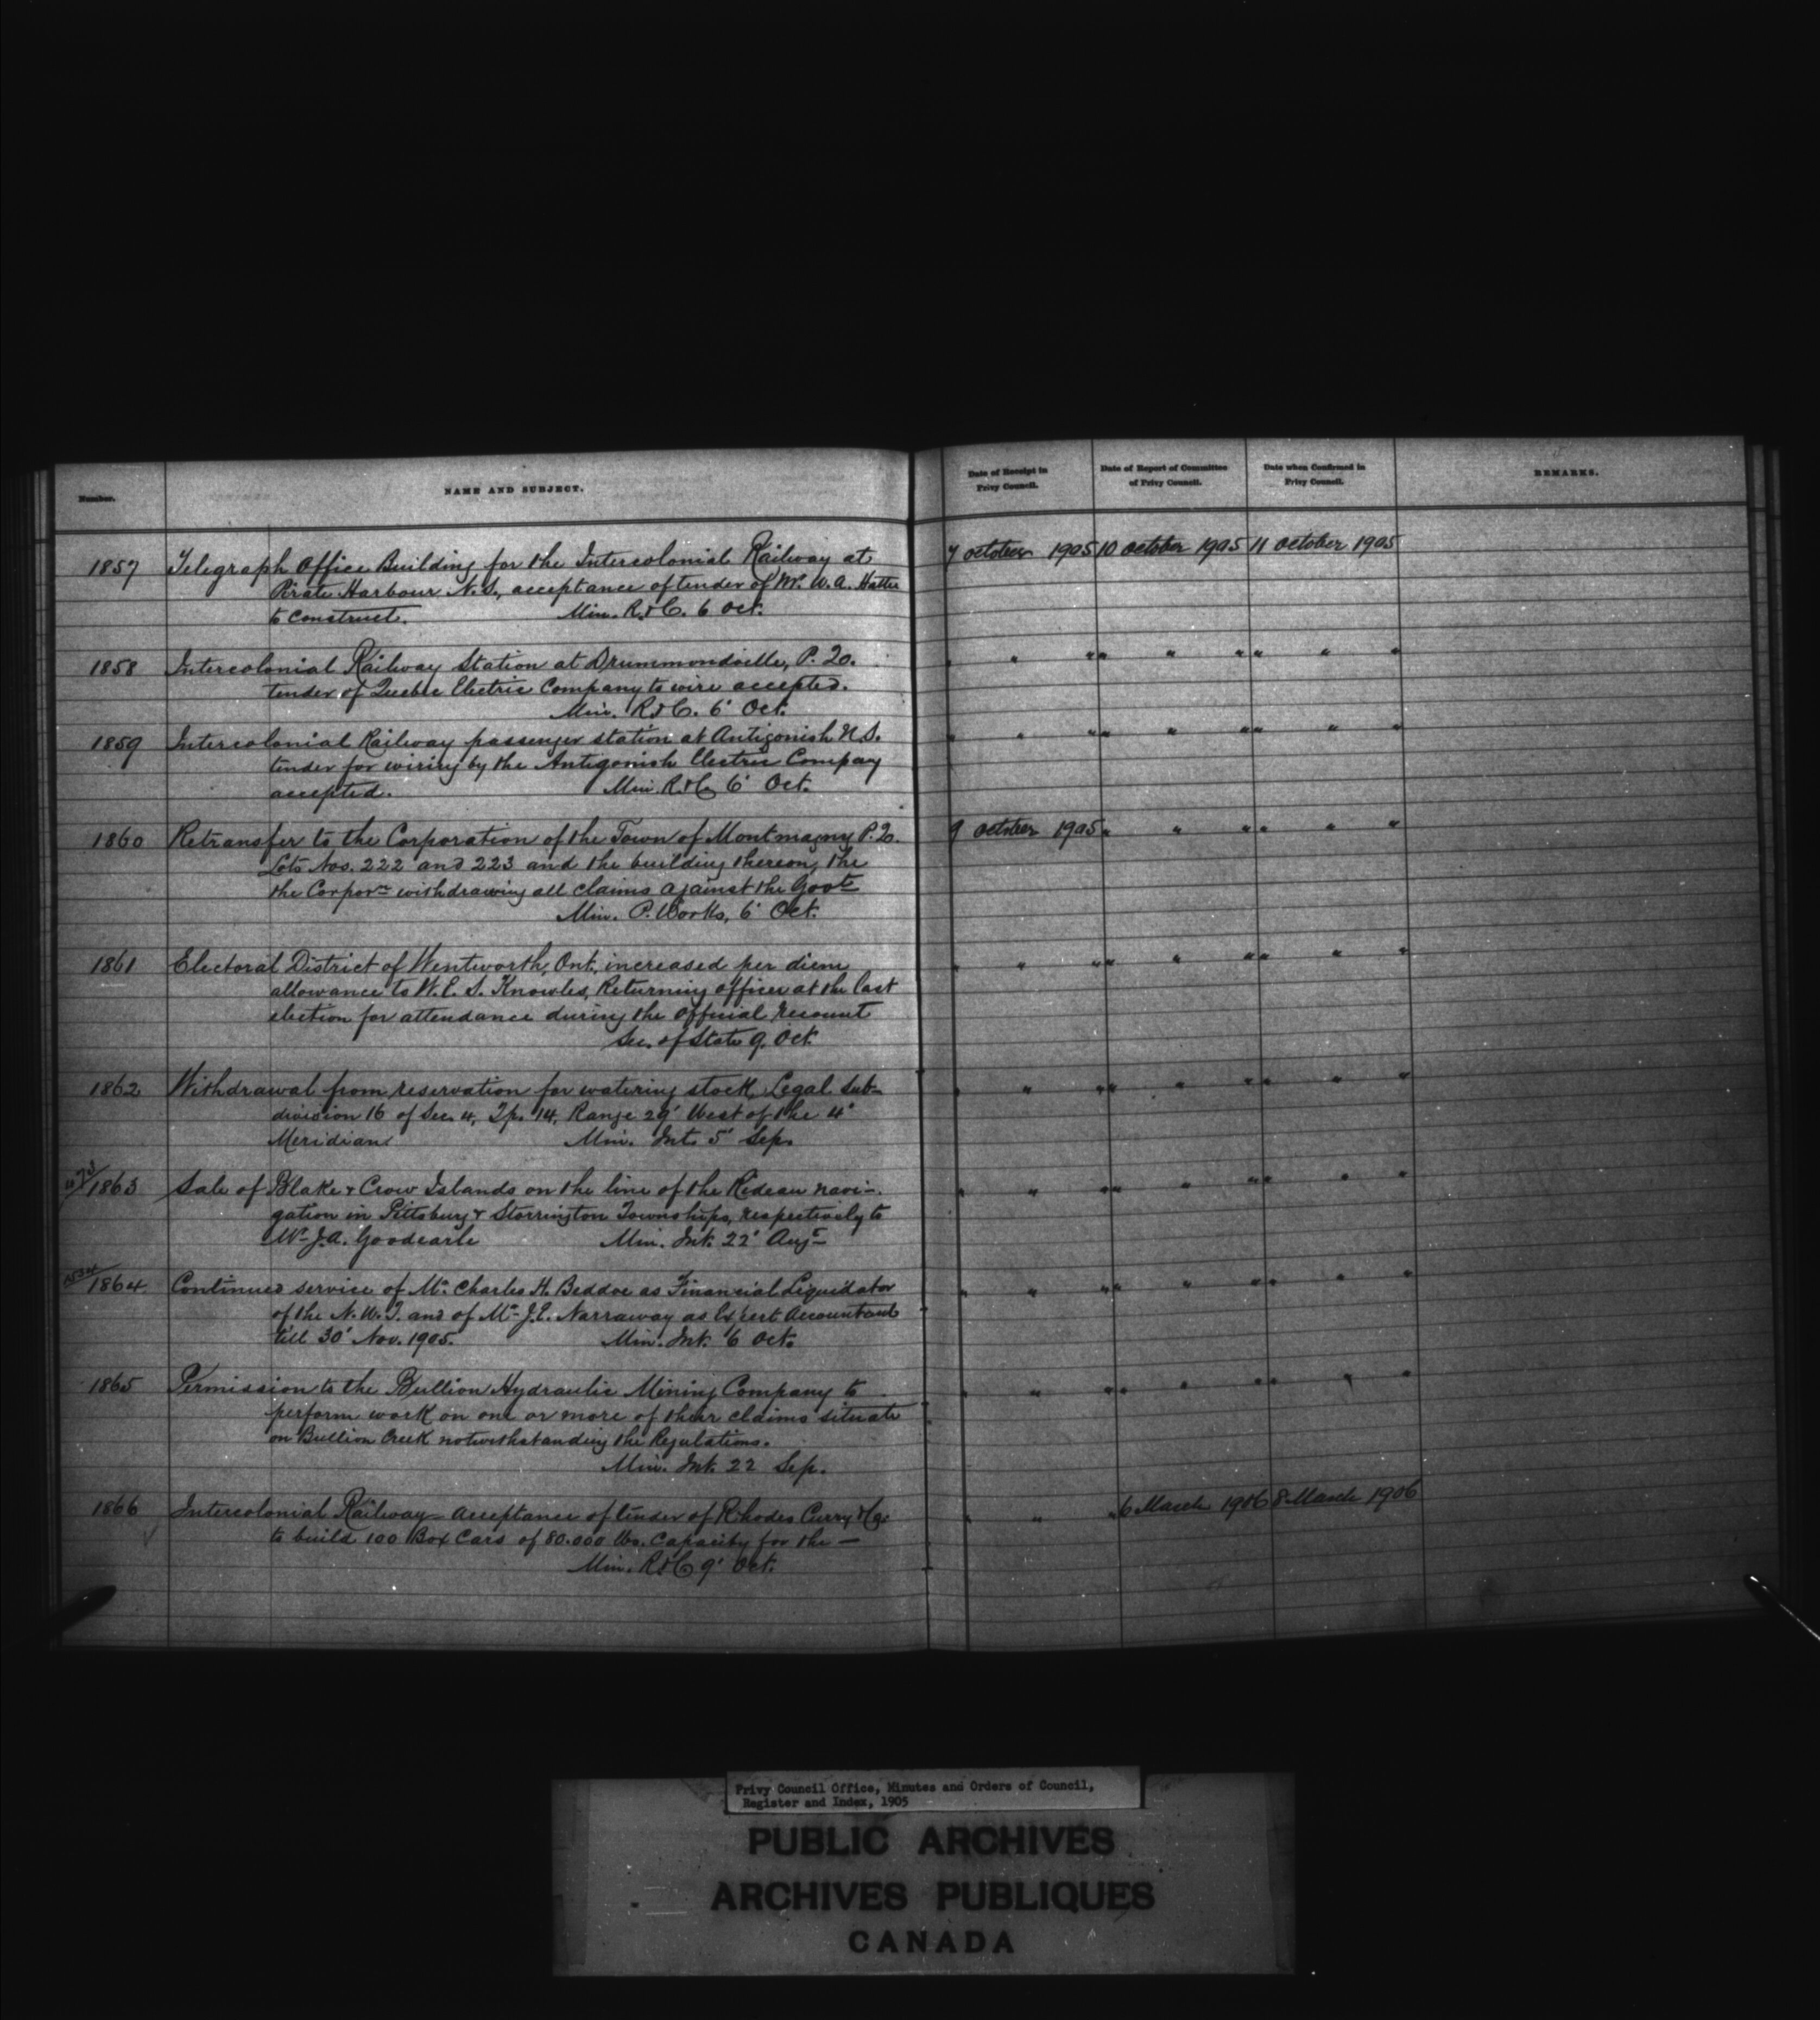 Number.
NAME AND SUBJECT.
Date of Receipt in
Privy Council.
Date of Report of Committee
of Privy Council.
Date when Confirmed in
Privy Council.
REMARKS.
1857 Telegraph Office Building for the Intercolonial Railway at 7 October 1905 10 October 1905 11 October 1905
Pirate Harbour N.S., acceptance of tender of Mr. W.A. Hattie
to construct. Min. R. & C. 6 Oct.
1858 Intercolonial Railway Station at Drummondville, P.Q. " " " " " " " " "
tender of Quebec Electric Company to wire accepted.
Min. R. & C. 6' Oct.
1859 Intercolonial Railway passenger station at Antigonish N.S. " " " " " " " " "
tender for wiring by the Antigonish Electric Company
accepted. Min. R. & C. 6' Oct.
1860 Retransfer to the Corporation of the Town of Montmagny P.Q. 9 October 1905 " " " " " "
Lots Nos. 222 and 223 and the building thereon, the
the Corporn withdrawing all claims against the Govt
Min. P. Works, 6' Oct.
1861 Electoral District of Wentworth, Ont., increased per diem " " " " " " " " "
allowance to W. E. S. Knowles, Returning officer at the last
election for attendance during the official recount
Sec. of State 9. Oct.
1862 Withdrawal from reservation for watering stock Legal Sub- " " " " " " " " "
division 16 of Sec. 4, Tp. 14, Range 29' West of the 4'
Meridian Min. Int. 5' Sep.
1863 Sale of Blake & Crow Islands on the line of the Rideau navi- " " " " " " " " "
gation in Pittsburg & Storrington Townships, respectively to
Mr J.A. Goodearle Min. Int. 22' Augt
1864 Continued service of Mr. Charles H. Beddoe as Financial Liquidator " " " " " " " " "
of the N.W.T. and of Mr J.E. Narraway as Expert Accountant
till 30' Nov. 1905. Min. Int. 6 Oct.
1865 Permission to the Bullion Hydraulic Mining Company to " " " " " " " " "
perform work on one or more of their claims situate
on Bullion Creek notwithstanding the Regulations.
Min. Int. 22 Sep.
1866 Intercolonial Railway - acceptance of tender of Rhodes Curry & Co. " " " 6 March 1906 8 March 1906
to build 100 Box Cars of 80.000 lbs. capacity for the —
Min. R & C 9' Oct.
Privy Council Office, Minutes and Orders of Council,
Register and Index, 1905
PUBLIC ARCHIVES
ARCHIVES PUBLIQUES
CANADA